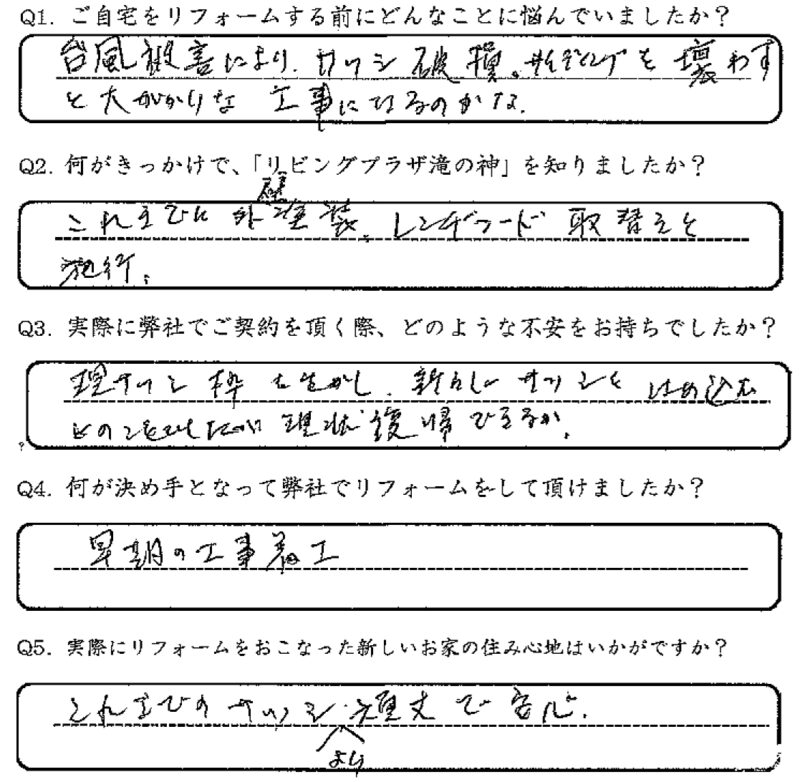 Q1. ご自宅をリフォームする前にどんなことに悩んでいましたか？
台風被害により、サッシ破損。サイディングを壊わす
と大がかりな工事になるのかな。
Q2. 何がきっかけで、「リビングプラザ滝の神」を知りましたか？
これまでに外壁塗装。レンヂフード取替えを
施行。
Q3. 実際に弊社でご契約を頂く際、どのような不安をお持ちでしたか？
現サッシ枠を生かし、新らしいサッシをはめ込む
現状復帰できるか。
Q4. 何が決め手となって弊社でリフォームをして頂けましたか？
早期の工事着工
Q5. 実際にリフォームをおこなった新しいお家の住み心地はいかがですか？
これまでのサッシより頑丈で安心。